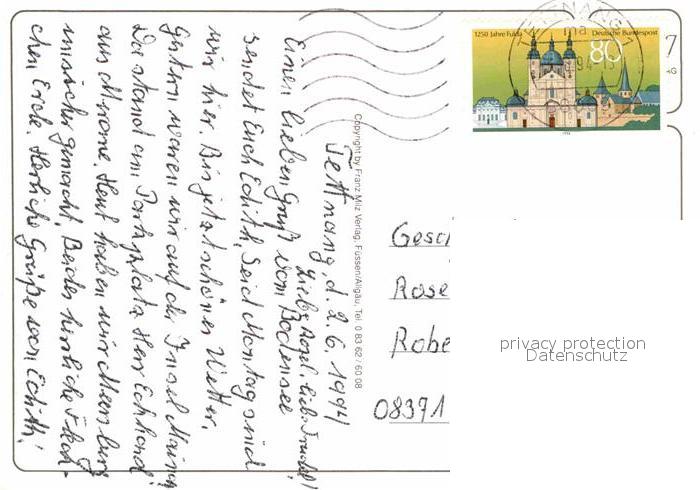 Tettnang, d. 2. 6. 1994
Liebe Rosel, lieb. Trudel!
Einen lieben Gruß vom Bodensee
sendet Euch Edith. Seid Montag sind
wir hier. Bis jetzt schönes Wetter.
Gestern waren wir auf der Insel Mainau
Da stand am Parkplatz Herr
aus Meerane. Heut haben wir Meersburg
unsicher gemacht. Beides herrliche Fleck-
chen Erde. Herzliche Grüße von Edith!
Copyright by Franz Milz Verlag, Füssen/Allgäu, Tel. 0 83 62 / 60 08
1250 Jahre Fulda
Deutsche Bundespost
80
TETTNANG
Gesch
Rose
Robe
08371
privacy protection
Datenschutz